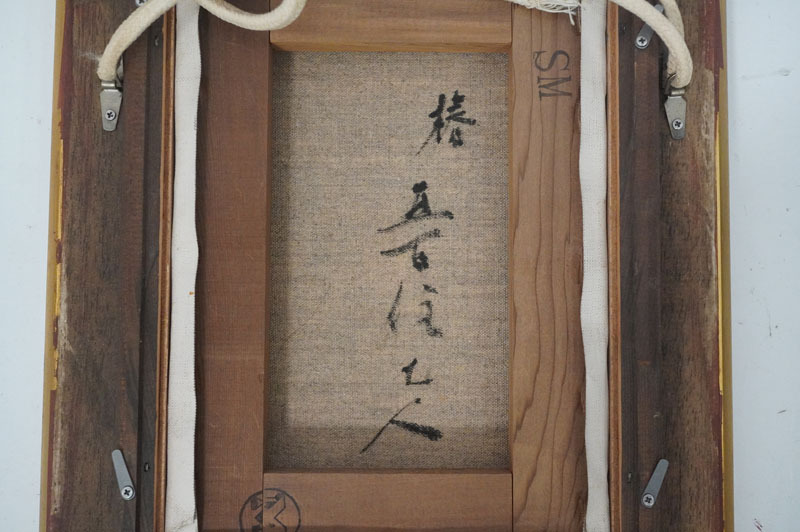 椿
五百住乙人
SM